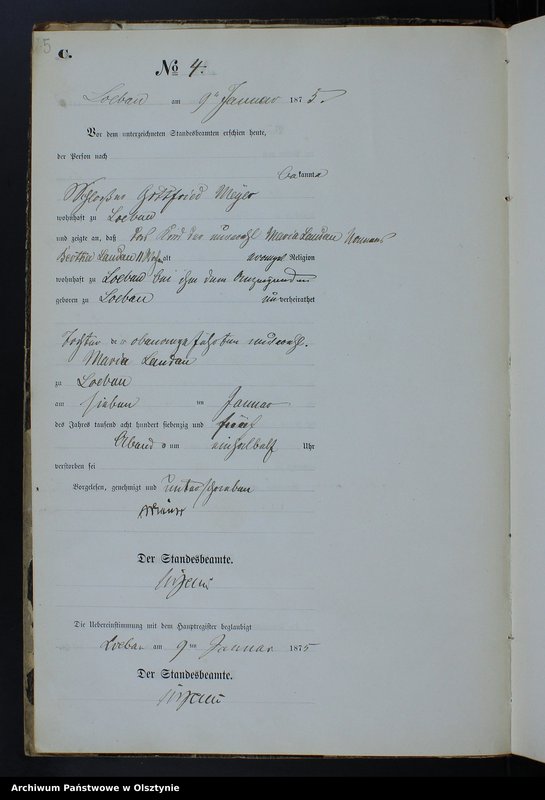 5
C.
No 4.
Loebau am 9ten Januar 1875.
Vor dem unterzeichneten Standesbeamten erschien heute,
der Person nach
bekannte
Gottfried Meyer
wohnhaft zu Loebau
und zeigte an, daß das Kind der unverehl Maria Landau Namens
Landau alt evangel Religion
wohnhaft zu Loebau bei ihm dem Anzeigenden
geboren zu Loebau unverheirathet
Tochter der obenangeführten unverehl.
Maria Landau
zu Loebau
am sieben ten Januar
des Jahres tausend acht hundert siebenzig und fünf
Abends um Uhr
verstorben sei
Vorgelesen, genehmigt und unterschrieben
Der Standesbeamte.
Die Uebereinstimmung mit dem Hauptregister beglaubigt
Loebau am 9ten Januar 1875
Der Standesbeamte.
Archiwum Państwowe w Olsztynie